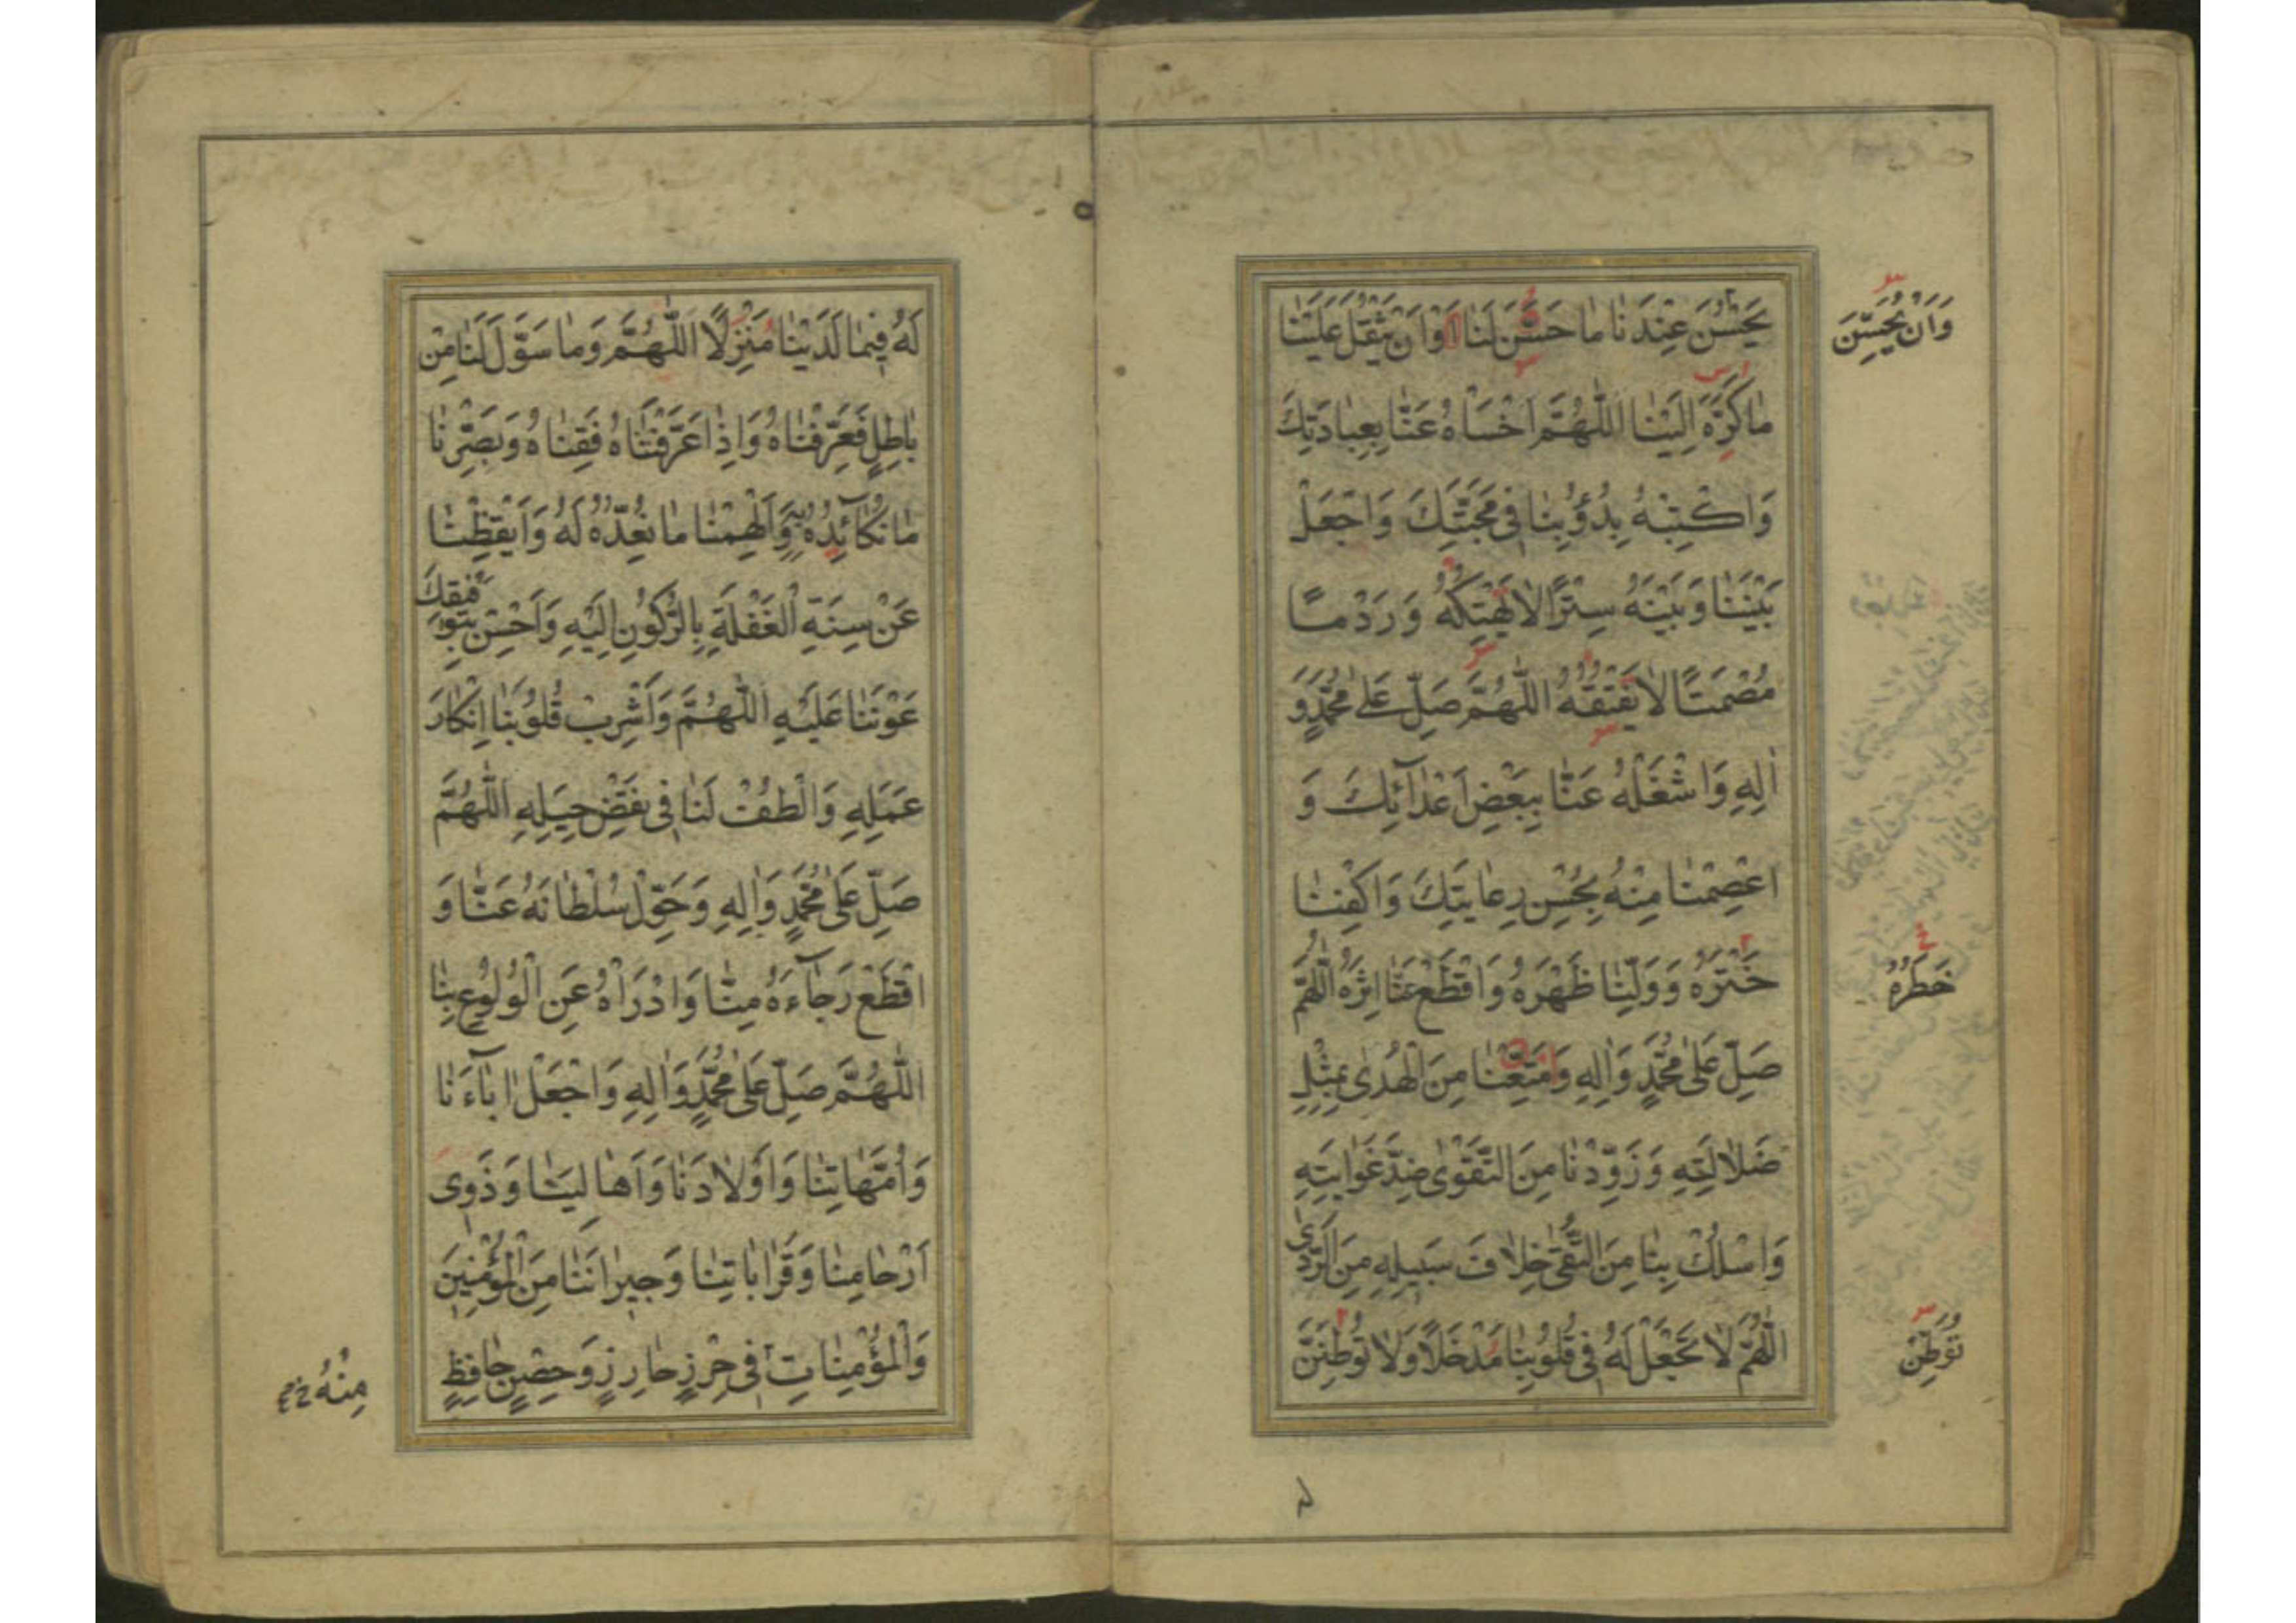 يَحْسُنَ عِنْدَنَا مَا حَسَّنَ لَنَا اَوْ اَنْ يَثْقُلَ عَلَيْنَا
وَاَنْ يُحَسِّنَ
مَا كَرَّهَ اِلَيْنَا اَللّٰهُمَّ اخْسَاْهُ عَنَّا بِعِبَادَتِكَ
وَاكْبِتْهُ بِدُؤُبِنَا فِى مَحَبَّتِكَ وَاجْعَلْ
بَيْنَنَا وَبَيْنَهُ سِتْرًا لَا يَهْتِكُهُ وَرَدْمًا
مُصْمَتًا لَا يَفْتُقُهُ اَللّٰهُمَّ صَلِّ عَلٰى مُحَمَّدٍ وَ
اٰلِهِ وَاشْغَلْهُ عَنَّا بِبَعْضِ اَعْدَآئِكَ وَ
اعْصِمْنَا مِنْهُ بِحُسْنِ رِعَايَتِكَ وَاكْفِنَا
خَتْرَهُ وَوَلِّنَا ظَهْرَهُ وَاقْطَعْ عَنَّا اِثْرَهُ اَللّٰهُمَّ
خَطَرَهُ
صَلِّ عَلٰى مُحَمَّدٍ وَاٰلِهِ وَاَمْتِعْنَا مِنَ الْهُدٰى بِمِثْلِ
ضَلَالَتِهِ وَزَوِّدْنَا مِنَ التَّقْوٰى ضِدَّ غَوَايَتِهِ
وَاسْلُكْ بِنَا مِنَ التُّقٰى خِلَافَ سَبِيلِهِ مِنَ الرَّدٰى
اَللّٰهُمَّ لَا تَجْعَلْ لَهُ فِى قُلُوبِنَا مَدْخَلًا وَلَا تُوَطِّنَنَّ
تُوَطِّنْ
لَهُ فِيمَا لَدَيْنَا مَنْزِلًا اَللّٰهُمَّ وَمَا سَوَّلَ لَنَا مِنْ
بَاطِلٍ فَعَرِّفْنَاهُ وَاِذَا عَرَّفْتَنَاهُ فَقِنَاهُ وَبَصِّرْنَا
مَا نُكَآئِدُهُ بِهِ وَاَلْهِمْنَا مَا نُعِدُّهُ لَهُ وَاَيْقِظْنَا
عَنْ سِنَةِ الْغَفْلَةِ بِالرُّكُونِ اِلَيْهِ وَاَحْسِنْ بِتَوْفِيقِكَ
عَوْنَنَا عَلَيْهِ اَللّٰهُمَّ وَاَشْرِبْ قُلُوبَنَا اِنْكَارَ
عَمَلِهِ وَالْطُفْ لَنَا فِى نَقْضِ حِيَلِهِ اَللّٰهُمَّ
صَلِّ عَلٰى مُحَمَّدٍ وَاٰلِهِ وَحَوِّلْ سُلْطَانَهُ عَنَّا وَ
اقْطَعْ رَجَآءَهُ مِنَّا وَادْرَاْهُ عَنِ الْوُلُوعِ بِنَا
اَللّٰهُمَّ صَلِّ عَلٰى مُحَمَّدٍ وَاٰلِهِ وَاجْعَلْ اٰبَآءَنَا
وَاُمَّهَاتِنَا وَاَوْلَادَنَا وَاَهَالِيَنَا وَذَوِى
اَرْحَامِنَا وَقَرَابَاتِنَا وَجِيرَانَنَا مِنَ الْمُؤْمِنِينَ
وَالْمُؤْمِنَاتِ فِى حِرْزٍ حَارِزٍ وَحِصْنٍ حَافِظٍ
مِنْهُ